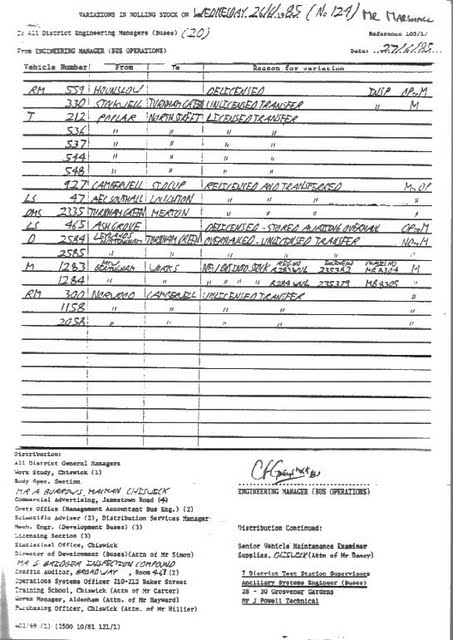 VARIATIONS IN ROLLING STOCK ON WEDNESDAY 26/6/85 (No 124) MR MARSHALL
To All District Engineering Managers (Buses) (20) Reference 105/1/
From ENGINEERING MANAGER (BUS OPERATIONS) Date: 27/6/85
Vehicle Number From To Reason for variation
RM 559 HOUNSLOW DELICENSED DISP OP-M
330 STOCKWELL TURNHAM GREEN UNLICENSED TRANSFER " M
T 212 POPLAR NORTH STREET LICENSED TRANSFER
536 " " " "
537 " " " "
544 " " " "
548 " " " "
927 CAMBERWELL SIDCUP RELICENSED AND TRANSFERRED M-OP
LS 47 AEC SOUTHALL LOUGHTON " " " "
DMS 2335 TURNHAM GREEN MERTON " " " "
LS 465 ASH GROVE DELICENSED - STORED AWAITING OVERHAUL OP-M
D 2584 TURNHAM GREEN OVERHAULED - UNLICENSED TRANSFER NO-M
2585 " " " " "
M 1283 MCW BIRMINGHAM WORKS NEW BUS INTO STOCK M
1284 " " " " " "
RM 300 NORWOOD CAMBERWELL UNLICENSED TRANSFER "
1158 " " " " "
2058 " " " " "
Distribution:
All District General Managers
Work Study, Chiswick (1)
Body Spec. Section
MR A BURROWS, CHISWICK
Commercial Advertising, Jamestown Road (4)
Costs Office (Management Accountant Bus Eng.) (2)
Scientific Adviser (2), Distribution Services Manager
Mech. Engr. (Development Buses) (3)
Licensing Section (3)
Statistical Office, Chiswick
Director of Development (Buses)(Attn of Mr Simon)
MR S BRIDGER INSPECTION COMPOUND
Traffic Auditor, BROADWAY, Room 469 (2)
Operations Systems Officer 210-212 Baker Street
Training School, Chiswick (Attn of Mr Carter)
Works Manager, Aldenham (Attn of Mr Hayward)
Purchasing Officer, Chiswick (Attn of Mr Hillier)
ENGINEERING MANAGER (BUS OPERATIONS)
Distribution Continued:
Senior Vehicle Maintenance Examiner
Supplies, CHISWICK (Attn of Mr )
7 District Test Station Supervisors
Ancillary Systems Engineer (Buses)
28 - 30 Grosvenor Gardens
Mr J Powell Technical
(1) (1500 10/81 121/1)